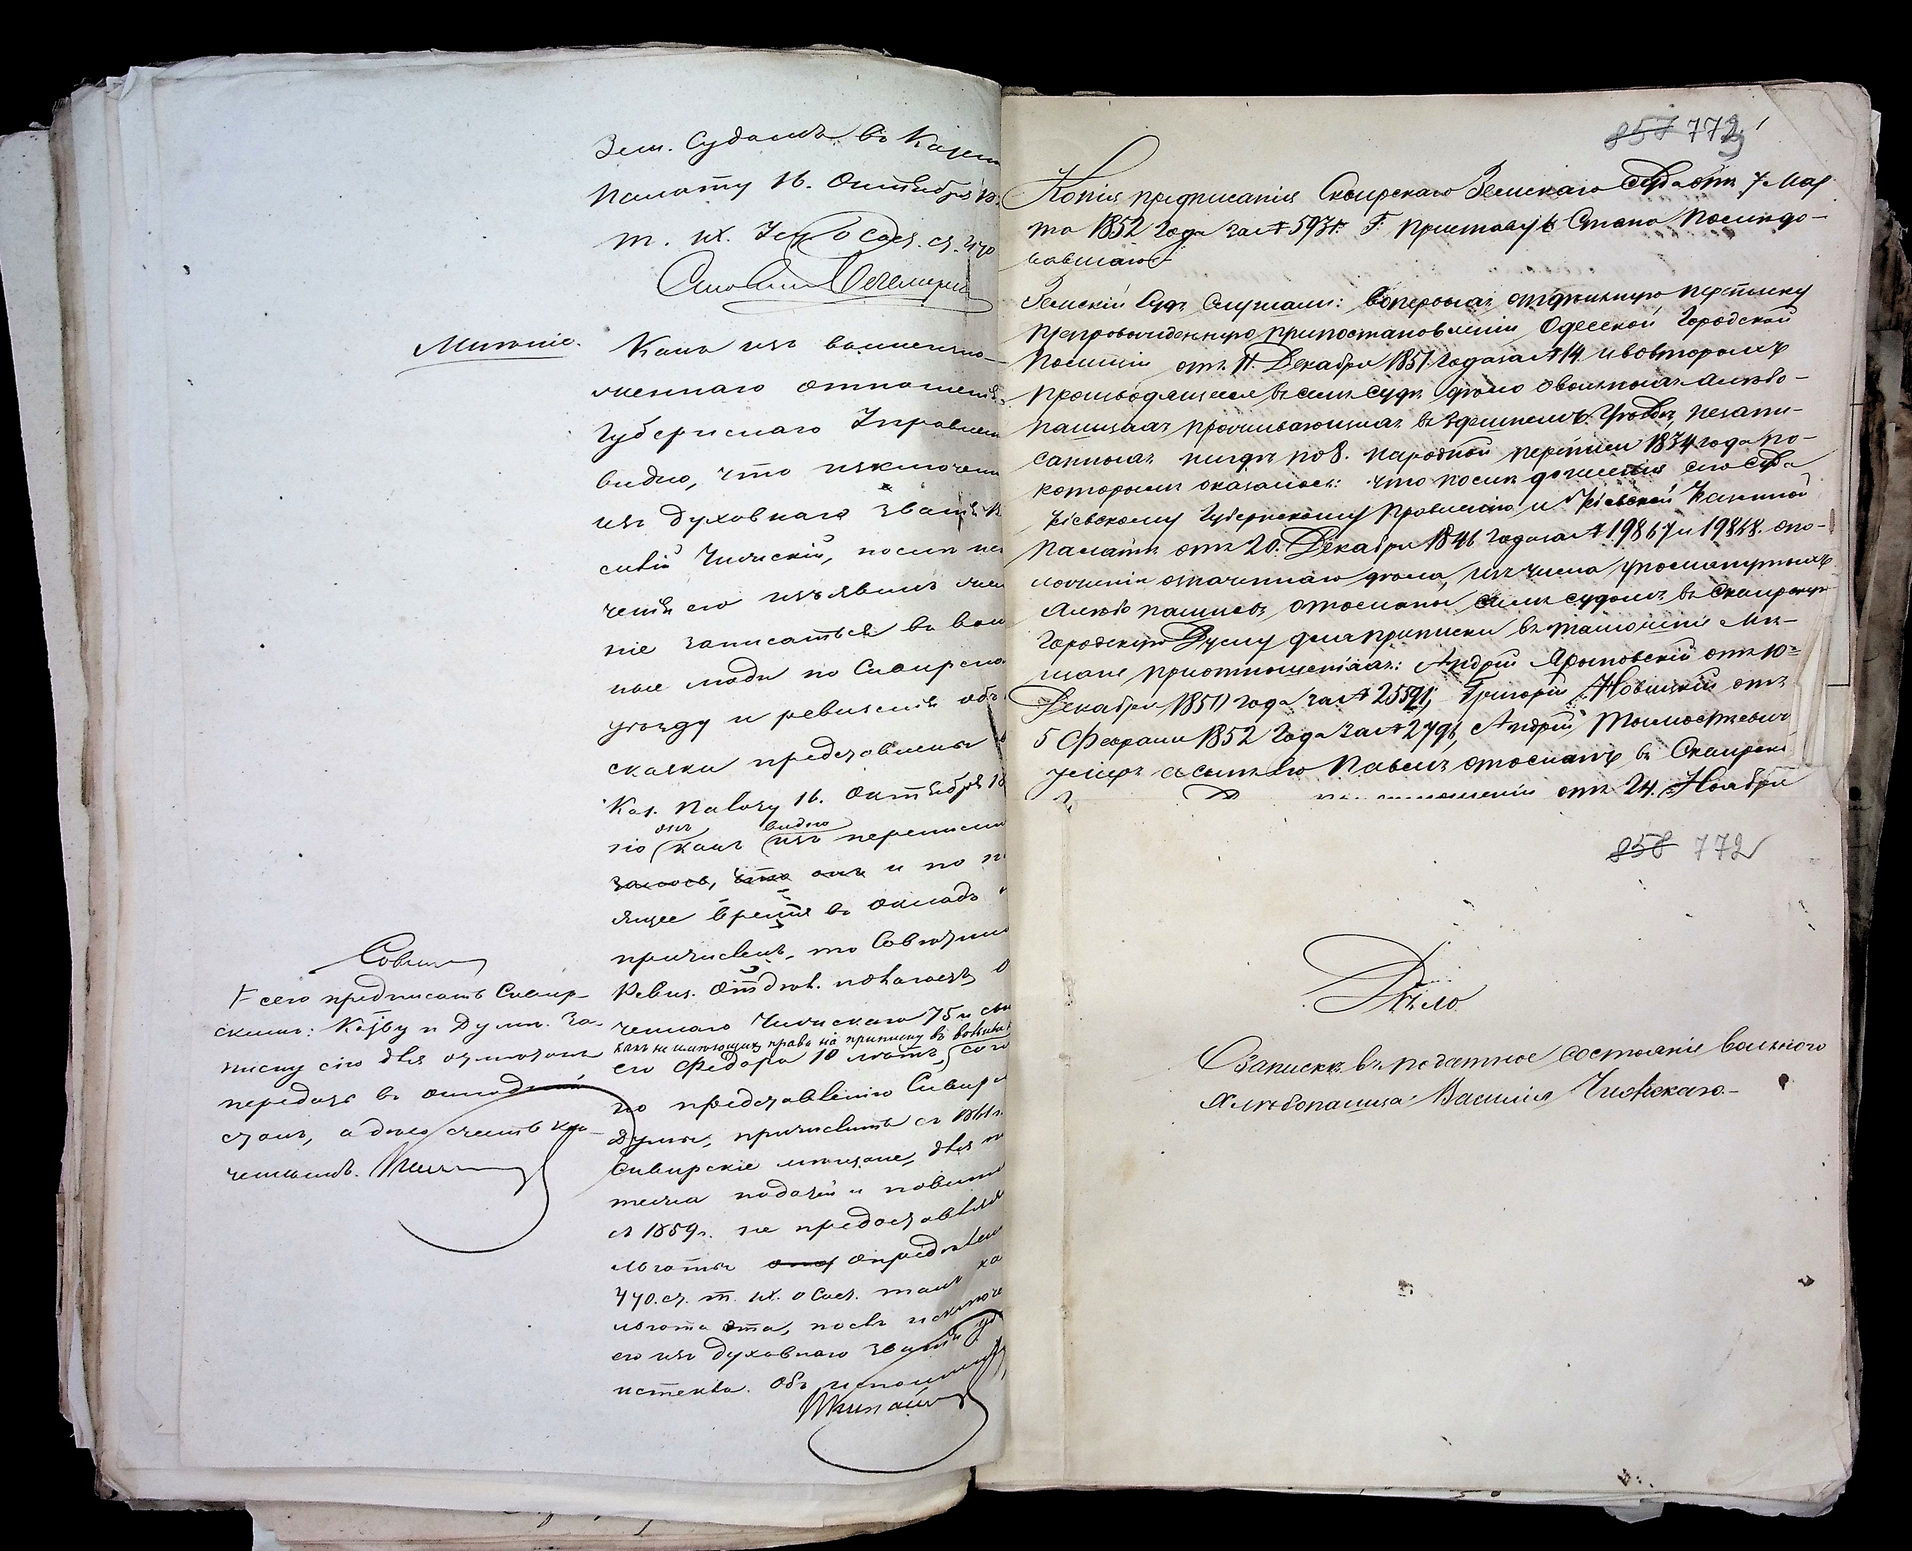 Зем. Судомъ въ Казен
Палату 16. Октября 18
т. IX. Зак. о Сост. ст. 470
Столонач.
Мнѣніе.
Какъ изъ вышеизло-
женнаго отношенія
Губернскаго Правлен
видно, что исключен
изъ духовнаго званія В
силій Чижскій, послѣ ис
ченія его изъявилъ жел
ніе записаться въ вол
ные люди по Сквирско
уѣзду и ревизскія об
сказки представлены
Каз. Палату 16. Октября 18
но какъ онъ изъ видно переписки
залось, что онъ и по н
ящее время въ окладъ
причисленъ, то
Ревиз. Отдѣл. полагаетъ
ченнаго Чижскаго 75 и сы
какъ не имѣющихъ права на приписку въ вольные
его Федора 10 лѣтъ, согл
по представленію Сквирс
Думы, причислить съ
Сквирскіе мѣщане, для п
тежа податей и повин
съ 1859 г. не предоставляя
льготы опредѣлен
470. ст. т. IX. о Сост. такъ ка
льгота эта, послѣ исключе
его изъ духовнаго званія уж
истекла. Объ исполнен
Совѣтн
сего предписать Сквир-
скимъ: Каз-ву и Думѣ. За-
писку сію для
передать въ окладной
столъ, а дѣло счесть кон-
ченнымъ.
857 772 1
Копія предписанія Сквирскаго Земскаго Суда отъ 7 Мар
та 1852 года за № 5937. Г. Приставу 1 Стана Послѣдо-
вавшаго.
Земскій Судъ Слушали: вопервыхъ отдѣльную переписку
препровожденную припостановленіи Одесской Городской
Полиціи отъ 11. Декабря 1851 года за № 14 и вовторыхъ
производящееся въ семъ судѣ дѣло о вольныхъ хлѣбо-
пашцахъ проживающихъ въ здѣшнемъ уѣздѣ, незапи-
санныхъ нигдѣ по 8. народной переписи 1834 года по-
которымъ оказалось: что послѣ донесенія сего Суда
Кіевскому Губернскому Правленію и Кіевской Казенной
Палатѣ отъ 20. Декабря 1846 года за № 19867 и 19868. опо-
ложеніи означеннаго дѣла, изъ числа упомянутыхъ
хлѣбопашцевъ отосланы симъ судомъ въ Сквирскую
Городскую Думу для приписки въ тамошніе Мѣ-
щане приотношеніяхъ: Андрей Яроповскій отъ 10-
Декабря 1851 года за № 25591; Григорій Новицкій отъ
5 Февраля 1852 года за № 2796, Андрей
умеръ а сынъ его Павелъ отосланъ въ Сквирск
отношеніи отъ 24. Ноября
858 772
Дѣло
О запискѣ въ податное состояніе вольнаго
хлѣбопашца Василія Чижскаго.